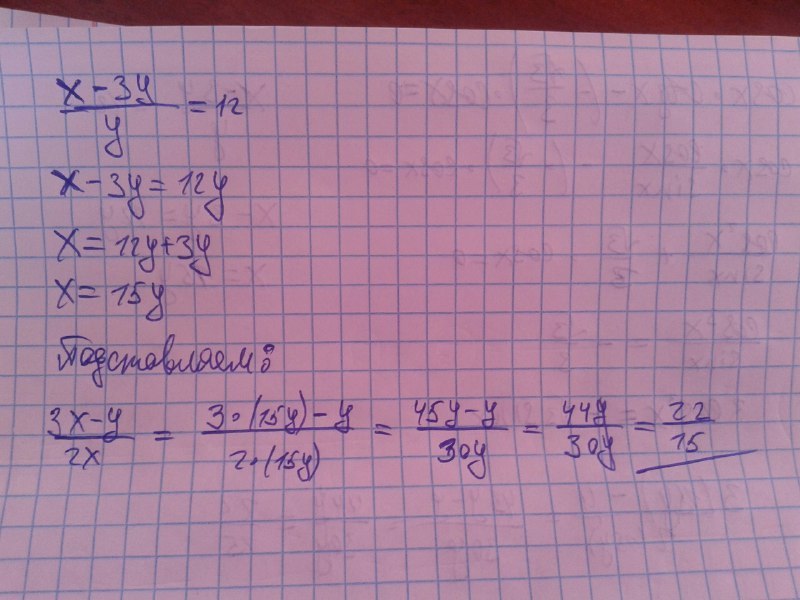 (x - 3y)/y = 12
x - 3y = 12y
x = 12y + 3y
x = 15y
Подставляем:
(3x - y)/(2x) = (3•(15y) - y)/(2•(15y)) = (45y - y)/(30y) = (44y)/(30y) = 22/15